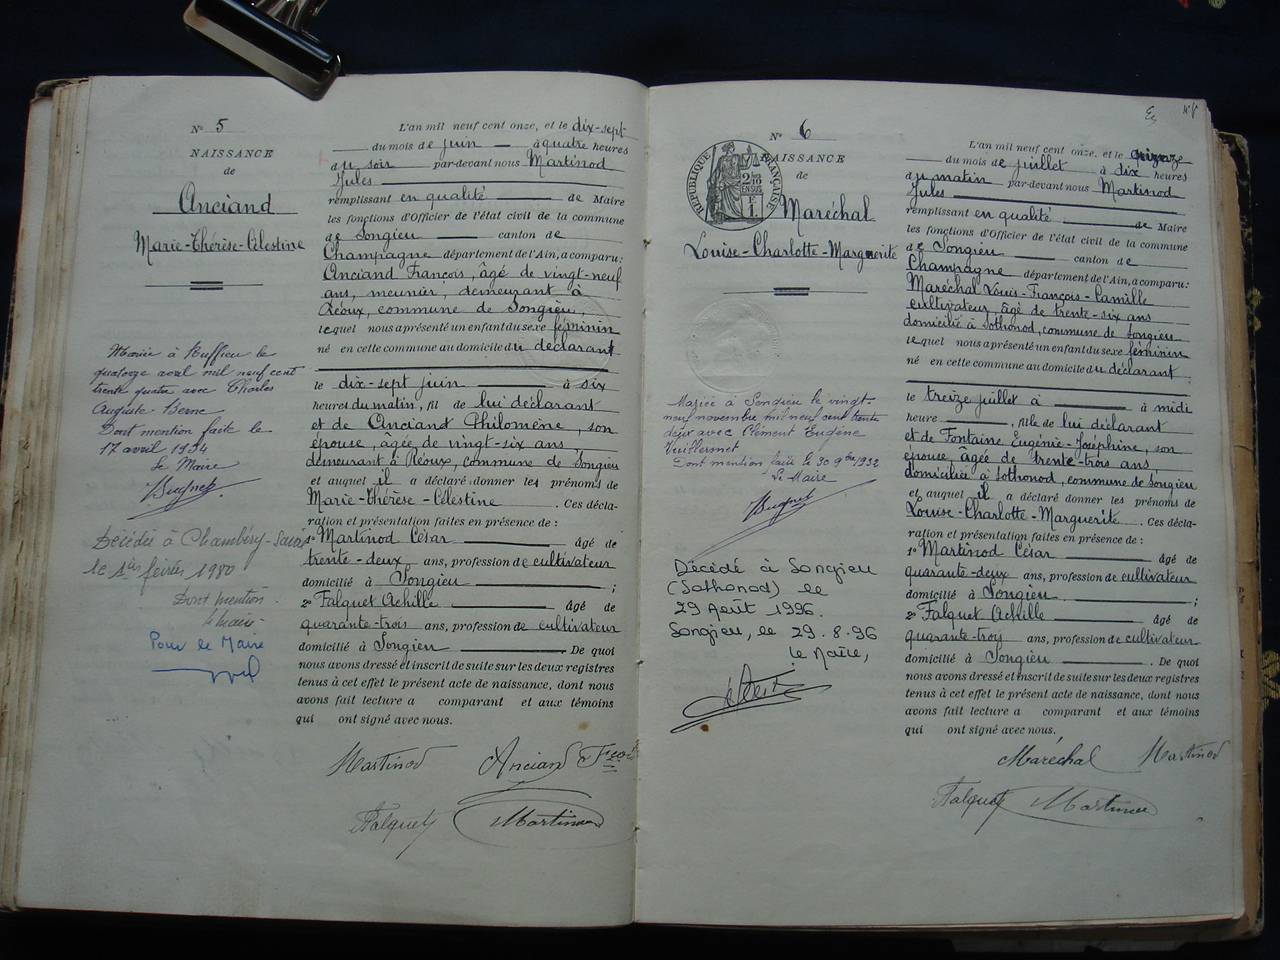 Nº 5
NAISSANCE
de
Anciand
Marie-Thérèse-Célestine
Mariée à Ruffieu le
quatorze avril mil neuf cent
trente quatre avec Charles
Auguste Berne
Dont mention faite le
17 avril 1934
Le Maire
Décédée à Chambéry-Savoie
le 1er février 1980
Dont mention
le maire
Pour le Maire
L'an mil neuf cent onze, et le dix-sept
du mois de juin à quatre heures
du soir par-devant nous Martinod
Jules
remplissant en qualité de Maire
les fonctions d'Officier de l'état civil de la commune
de Songieu canton de
Champagne département de l'Ain, a comparu :
Anciand François, âgé de vingt-neuf
ans, meunier, demeurant à
Réoux, commune de Songieu,
lequel nous a présenté un enfant du sexe féminin
né en cette commune au domicile du déclarant
le dix-sept juin à six
heures du matin, fil de lui déclarant
et de Anciand Philomène, son
épouse, âgée de vingt-six ans,
demeurant à Réoux, commune de Songieu
et auquel il a déclaré donner les prénoms de
Marie-Thérèse-Célestine. Ces décla-
ration et présentation faites en présence de :
1º Martinod César âgé de
trente-deux ans, profession de cultivateur
domicilié à Songieu ;
2º Falquet Achille âgé de
quarante-trois ans, profession de cultivateur
domicilié à Songieu De quoi
nous avons dressé et inscrit de suite sur les deux registres
tenus à cet effet le présent acte de naissance, dont nous
avons fait lecture a comparant et aux témoins
qui ont signé avec nous.
Martinod Anciand
Falquet Martinod
Nº 6
RÉPUBLIQUE FRANÇAISE
NAISSANCE
de
Maréchal
Louise-Charlotte-Marguerite
Mariée à Songieu le vingt-
neuf novembre mil neuf cent trente
deux avec Clément Eugène
Vuillermet
Dont mention faite le 30 9bre 1932
Le Maire
Décédé à Songieu
(Sothonod) le
29 Août 1996.
Songieu, le 29.8.96
le Maire,
L'an mil neuf cent onze, et le quinze
du mois de juillet à dix heures
du matin par-devant nous Martinod
Jules
remplissant en qualité de Maire
les fonctions d'Officier de l'état civil de la commune
de Songieu canton de
Champagne département de l'Ain, a comparu :
Maréchal Louis-François-Camille
cultivateur, âgé de trente-six ans
domicilié à Sothonod, commune de Songieu
lequel nous a présenté un enfant du sexe féminin
né en cette commune au domicile du déclarant
le treize juillet à à midi
heure, fille de lui déclarant
et de Fontaine Eugénie-Joséphine, son
épouse, âgée de trente-trois ans,
domiciliée à Sothonod, commune de Songieu
et auquel il a déclaré donner les prénoms de
Louise-Charlotte-Marguerite. Ces décla-
ration et présentation faites en présence de :
1º Martinod César âgé de
quarante-deux ans, profession de cultivateur
domicilié à Songieu ;
2º Falquet Achille âgé de
quarante-trois ans, profession de cultivateur
domicilié à Songieu. De quoi
nous avons dressé et inscrit de suite sur les deux registres
tenus à cet effet le présent acte de naissance, dont nous
avons fait lecture a comparant et aux témoins
qui ont signé avec nous.
Maréchal Martinod
Falquet Martinod